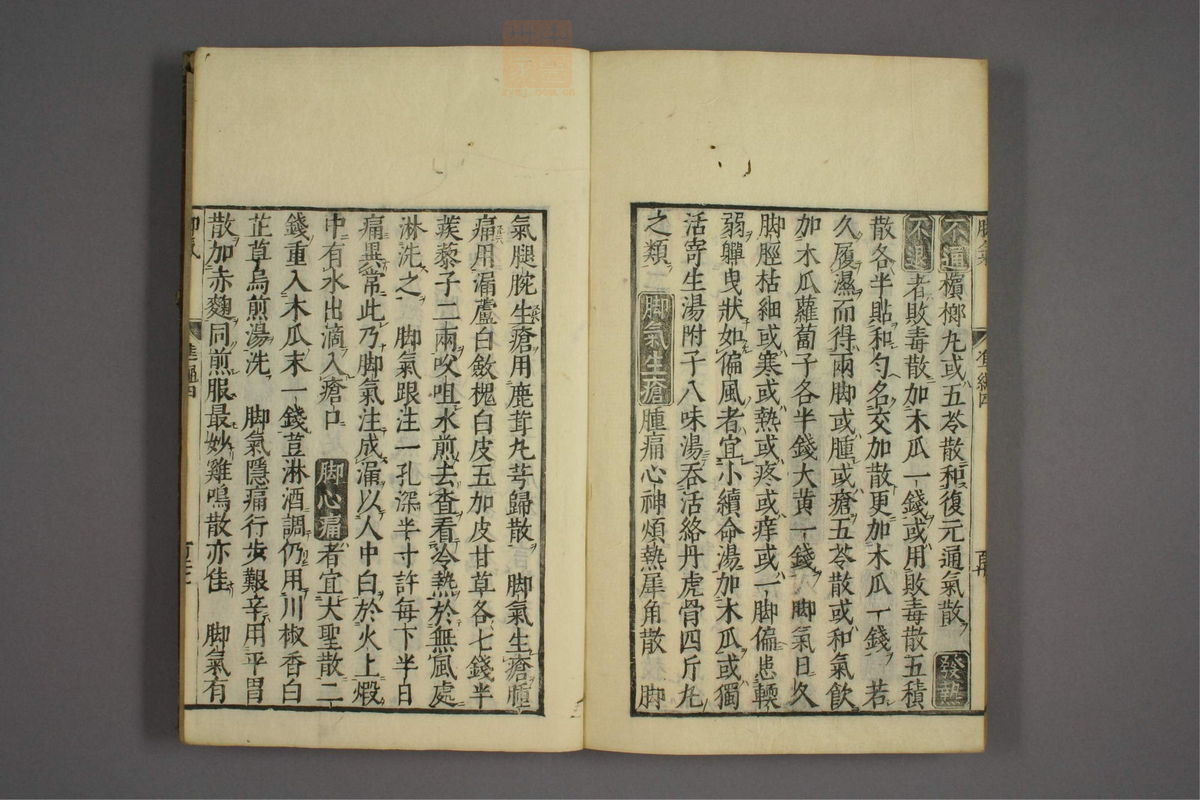 不通檳榔丸或五苓散和復元通氣散 發熱
不退者敗毒散加木瓜一錢或用敗毒散五積
散各半貼和勻名交加散更加木瓜一錢 若
久履濕而得兩脚或腫或瘡五苓散或和氣飲
加木瓜蘿蔔子各半錢大黃一錢 脚氣日久
脚脛枯細或寒或熱或疼或痒或一脚偏患軟
弱軃曳狀如偏風者宜小續命湯加木瓜或獨
活寄生湯附子八味湯吞活絡丹虎骨四斤丸
之類 脚氣生瘡腫痛心神煩熱犀角散 脚
氣腿腕生瘡用鹿茸丸芎歸散 脚氣生瘡腫
痛用漏蘆白斂槐白皮五加皮甘草各七錢半
蒺藜子二兩㕮咀水煎去查看冷熱於無風處
淋洗之 脚氣跟注一孔深半寸許每下半日
痛異常此乃脚氣注成漏以人中白於火上煅
中有水出滴入瘡口 脚心痛者宜大聖散二
錢重入木瓜末一錢荳淋酒調仍用川椒香白
芷草烏煎湯洗 脚氣隱痛行步艱辛用平胃
散加赤麴同煎服最妙雞鳴散亦佳 脚氣有